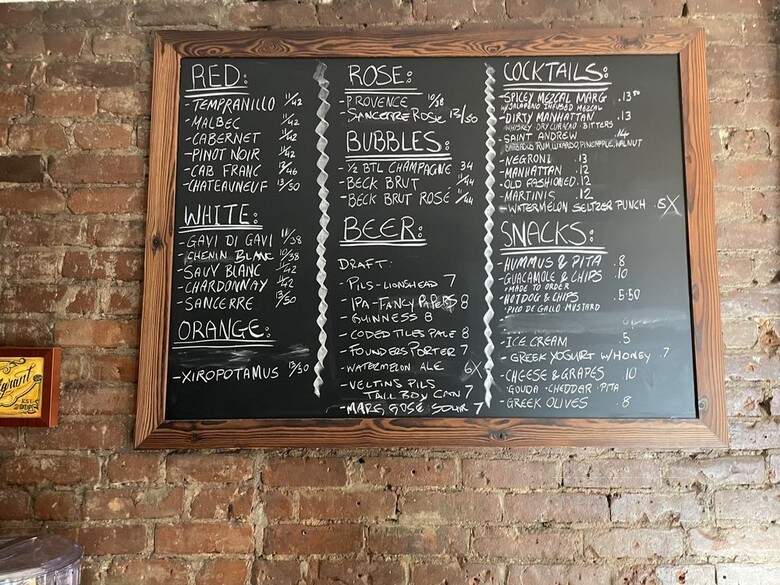 RED:
-TEMPRANILLO 11/42
-MALBEC 11/42
-CABERNET 11/42
-PINOT NOIR 11/42
-CAB FRANC 12/46
-CHATEAUNEUF 13/50
WHITE:
-GAVI DI GAVI 11/38
-CHENIN BLANC 10/38
-SAUV BLANC 11/42
-CHARDONNAY 11/42
-SANCERRE 13/50
ORANGE:
-XIROPOTAMUS 13/50
ROSE:
-PROVENCE 10/38
-SANCERRE ROSE 13/50
BUBBLES:
-½ BTL CHAMPAGNE 34
-BECK BRUT 11/44
-BECK BRUT ROSÉ 11/44
BEER:
DRAFT:
-PILS-LIONSHEAD 7
-IPA-FANCY PAPERS 8
-GUINNESS 8
-CODED TILES PALE 8
-FOUNDERS PORTER 7
-WATERMELON ALE 6X
-VELTINS PILS
TALL BOY CAN 7
-MARG GOSE SOUR 7
COCKTAILS:
-SPICEY MEZCAL MARG .13.50
W/JALAPENO INFUSED MEZCAL
-DIRTY MANHATTAN .13
WHISKEY DRY CURACAO BITTERS
-SAINT ANDREW .14
RUM, LUXARDO, PINEAPPLE, WALNUT
-NEGRONI .13
-MANHATTAN .12
-OLD FASHIONED .12
-MARTINIS .12
-WATERMELON SELTZER PUNCH .5X
SNACKS:
-HUMMUS & PITA .8
-GUACAMOLE & CHIPS .10
*MADE TO ORDER
-HOTDOG & CHIPS .5.50
*PICO DE GALLO MUSTARD
-ICE CREAM .5
-GREEK YOGURT W/HONEY .7
-CHEESE & GRAPES 10
GOUDA · CHEDDAR · PITA
-GREEK OLIVES .8
EST.